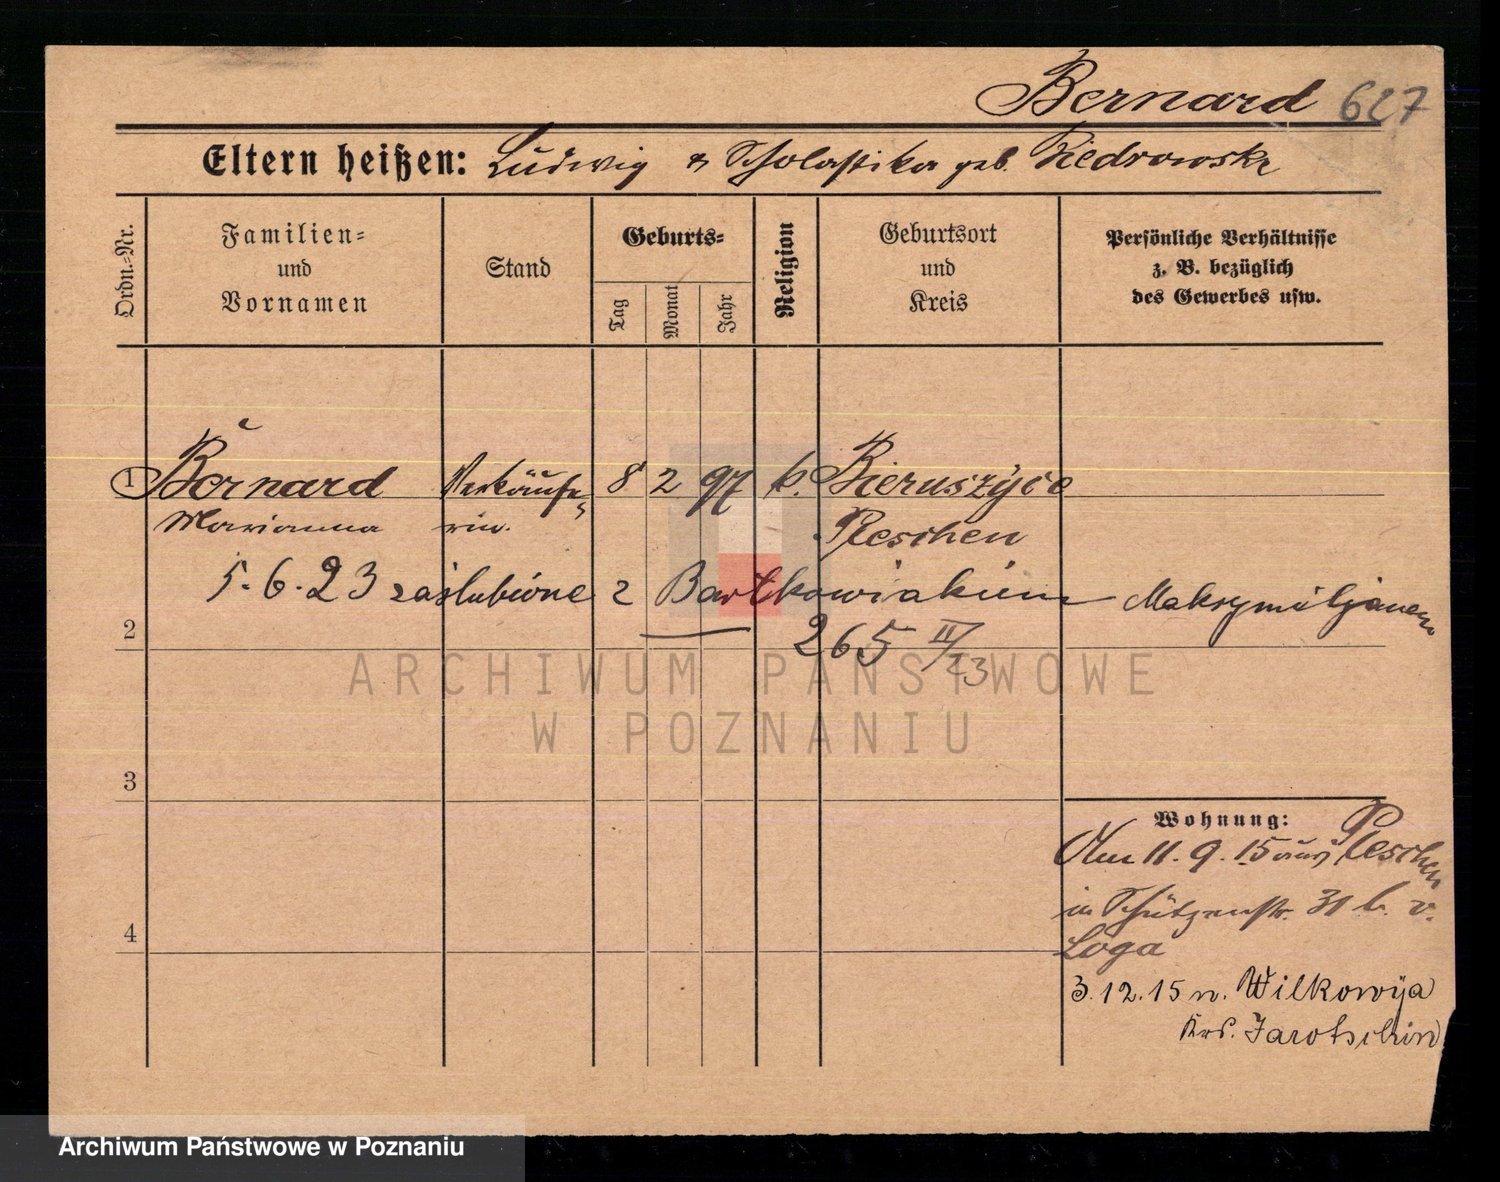 Bernard 627
Eltern heißen: Ludwig & Scholastika geb. Biedrowska
Ordn.-Nr.
Familien-
und
Vornamen
Stand
Geburts-
Tag
Monat
Jahr
Religion
Geburtsort
und
Kreis
Persönliche Verhältnisse
z. B. bezüglich
des Gewerbes usw.
1 Bernard Verkäufe- 8 2 97 k. Bieruszyce
Marianna rin. Pleschen
5.6.23 zaślubione z Bartkowiakiem Maksymiljanem
2
265 II/23
3
4
Wohnung:
Am 11.9.15 aus Pleschen
in Schützenstr. 31 b. v.
Loga
3.12.15 n. Wilkowyja
Krs. Jarotschin
ARCHIWUM PAŃSTWOWE
W POZNANIU
Archiwum Państwowe w Poznaniu